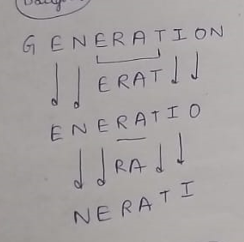 GENERATION
ERAT
ENERATIO
RA
NERATI